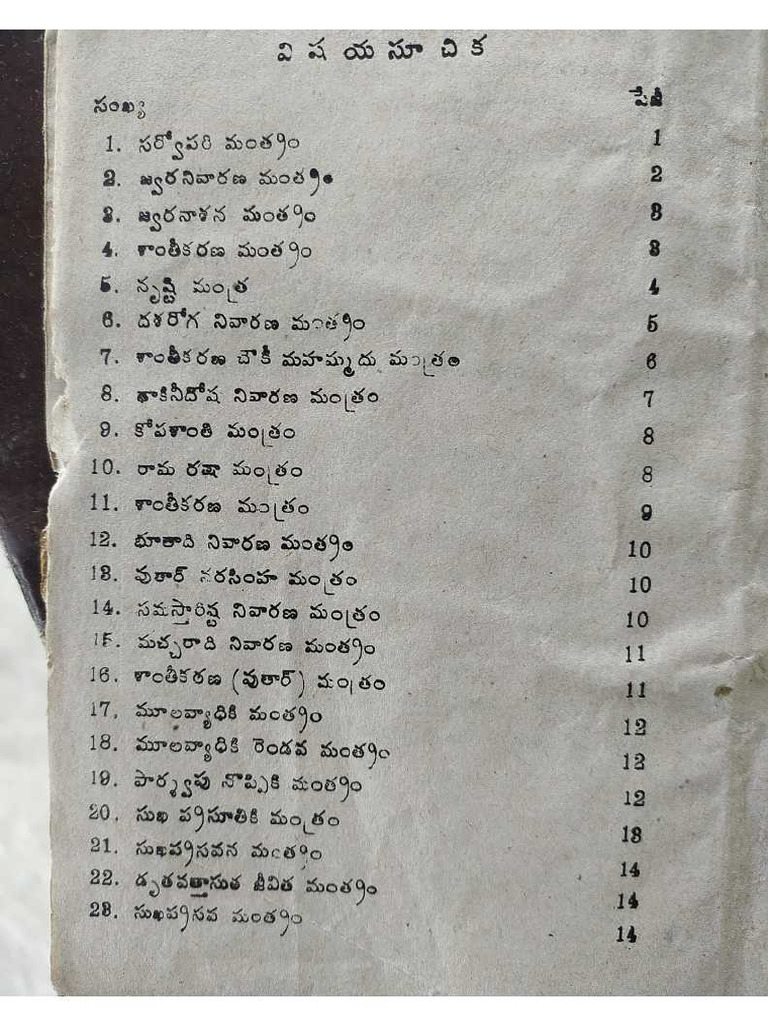 విషయసూచిక
సంఖ్య పేజీ
1. సర్వోపరి మంత్రం 1
2. జ్వరనివారణ మంత్రం 2
3. జ్వరనాశన మంత్రం 3
4. శాంతీకరణ మంత్రం 3
5. దృష్టి మంత్ర 4
6. దశరోగ నివారణ మంత్రం 5
7. శాంతీకరణ చౌకీ మహమ్మదు మంత్రం 6
8. శాకినీదోష నివారణ మంత్రం 7
9. కోపశాంతి మంత్రం 8
10. రామ రక్షా మంత్రం 8
11. శాంతీకరణ మంత్రం 9
12. భూతాది నివారణ మంత్రం 10
13. వుతార్ నరసింహ మంత్రం 10
14. సమస్తారిష్ట నివారణ మంత్రం 10
15. మచ్చరాది నివారణ మంత్రం 11
16. శాంతీకరణ (వుతార్) మంత్రం 11
17. మూలవ్యాధికి మంత్రం 12
18. మూలవ్యాధికి రెండవ మంత్రం 12
19. పార్శ్వపు నొప్పికి మంత్రం 12
20. సుఖ ప్రసూతికి మంత్రం 13
21. సుఖప్రసవన మంత్రం 14
22. జీవిత మంత్రం 14
23. సుఖప్రసవ మంత్రం 14